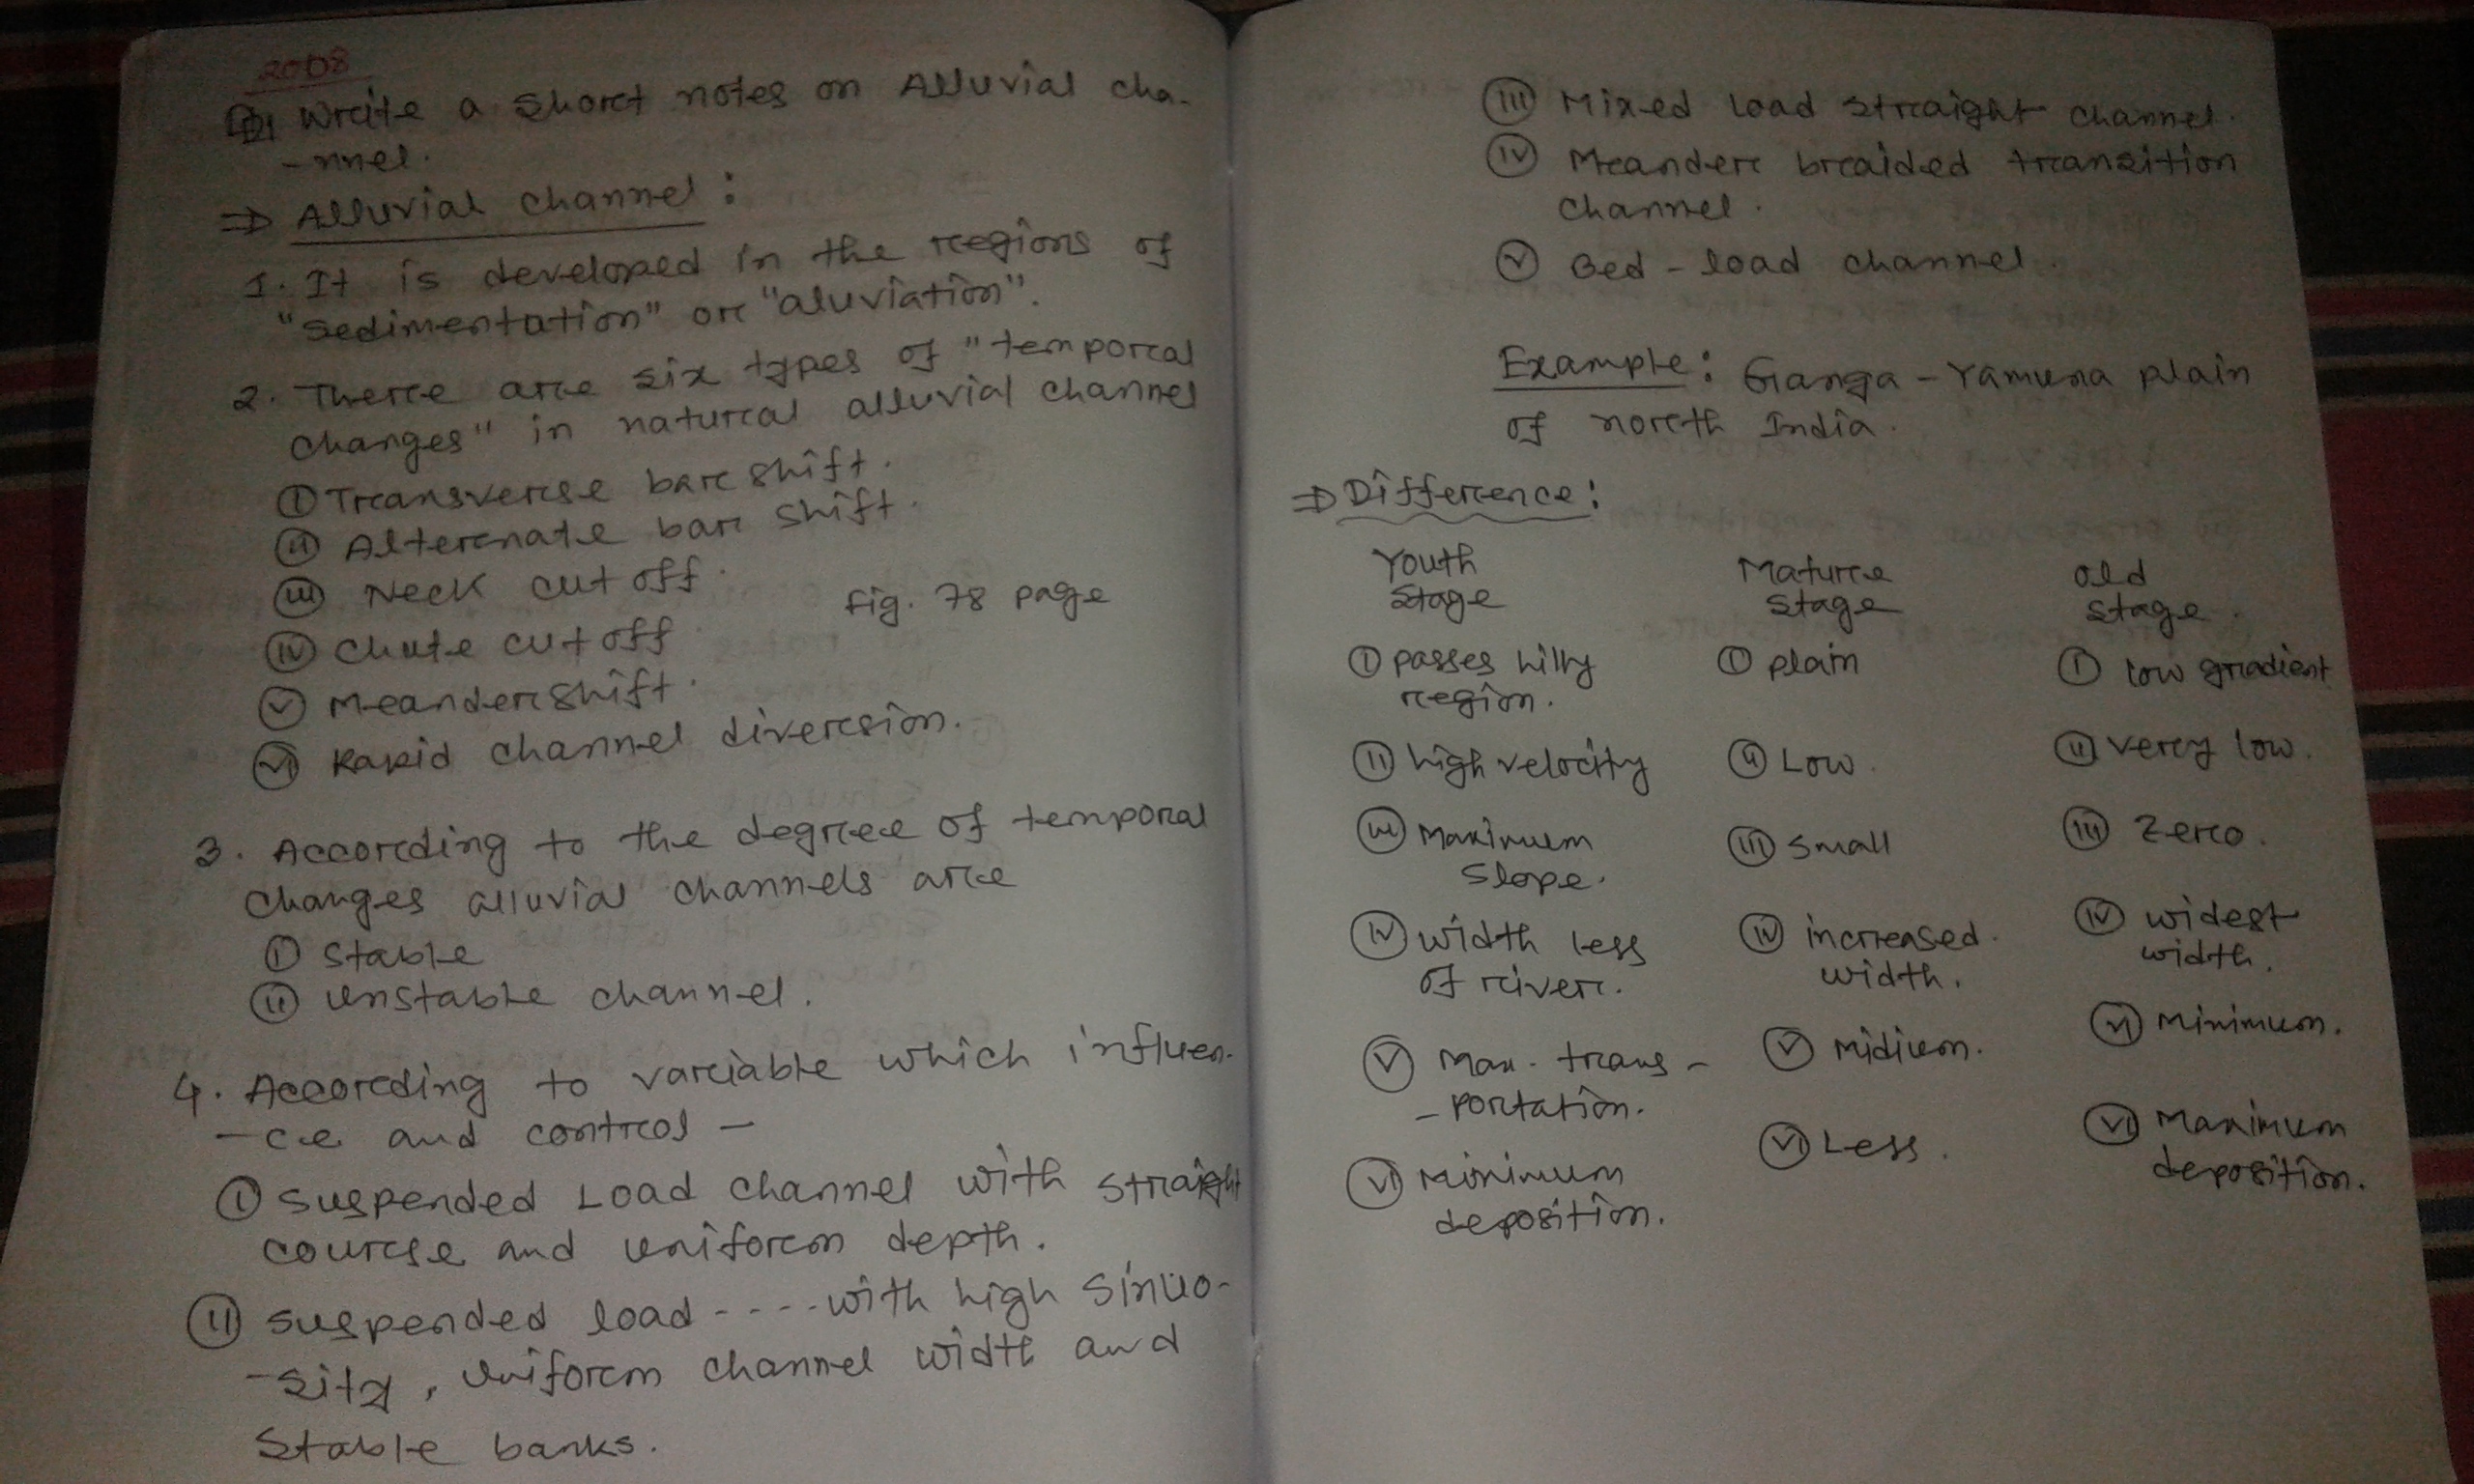 2008
Q1 Write a short notes on Alluvial cha-
-nnel.
⇒ Alluvial channel :
1. It is developed in the regions of
"sedimentation" or "aluviation".
2. There are six types of "temporal
changes" in natural alluvial channel
(i) Transverse bar shift.
(ii) Alternate bar shift.
(iii) Neck cut off.
fig. 78 page
(iv) chute cut off
(v) meander shift.
(vi) Rapid channel diversion.
3. According to the degree of temporal
changes alluvial channels are
(i) stable
(ii) unstable channel.
4. According to variable which influen-
-ce and control -
(i) suspended Load channel with straight
course and uniform depth.
(ii) suspended load ---- with high sinuo-
-sity, uniform channel width and
stable banks.
(iii) Mixed load straight channel.
(iv) Meander braided transition
channel.
(v) Bed - load channel.
Example : Ganga - Yamuna plain
of north India.
⇒ Difference :
Youth Stage
Mature stage
old stage.
(i) passes hilly region.
(i) plain
(i) low gradient
(ii) high velocity
(ii) Low.
(ii) very low.
(iii) Maximum slope.
(iii) small
(iii) Zero.
(iv) width less of river.
(iv) increased width.
(iv) widest width.
(v) Max. trans-
-portation.
(v) midium.
(vi) minimum.
(vi) Minimum deposition.
(vi) Less.
(vi) Maximum deposition.